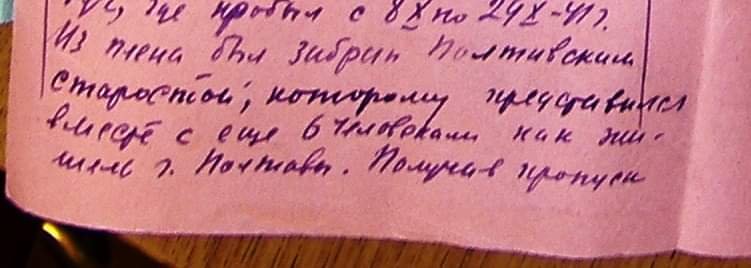 где пробыл с 8 X по 24 X-41 г.
Из плена был забран Полтавским
старостой, которому представился
вместе с еще 6 человеками как жи-
тель г. Полтавы. Получив пропуск